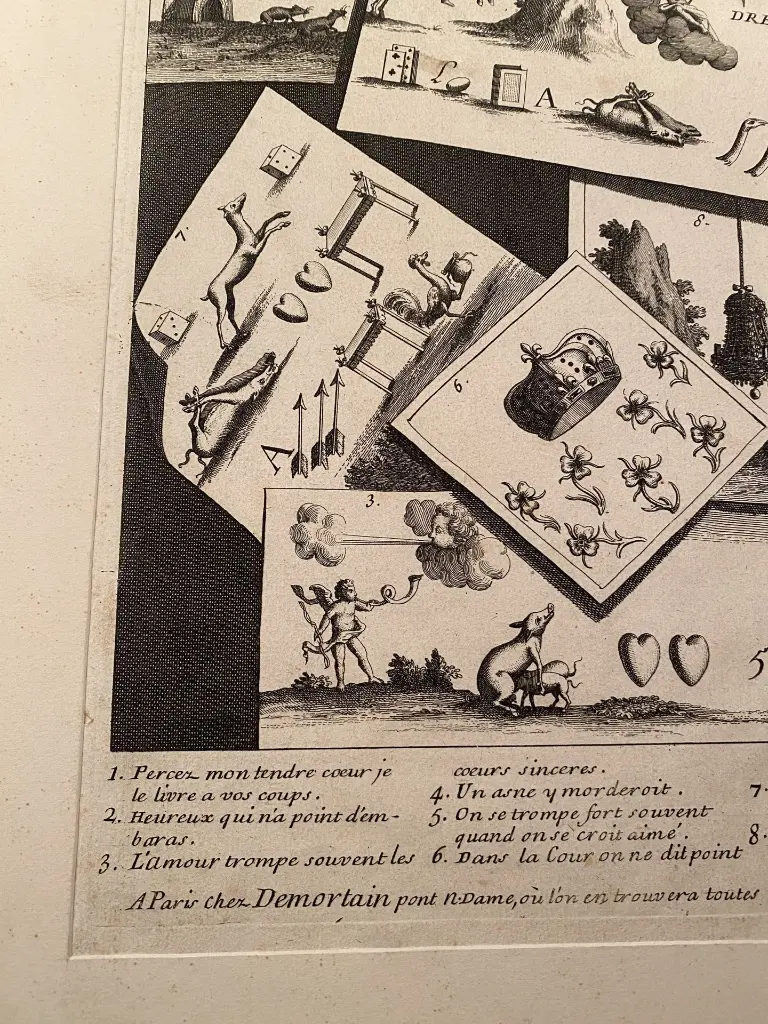 DRE
A
8.
7.
6.
A
3.
5
1. Percez mon tendre cœur je
le livre a vos coups.
2. Heureux qui n'a point d'em-
baras.
3. L'amour trompe souvent les
cœurs sinceres.
4. Un asne y morderoit.
5. On se trompe fort souvent
quand on se croit aimé.
6. Dans la Cour on ne dit point
7.
8.
A Paris chez Demortain pont N.Dame, où l'on en trouvera toutes